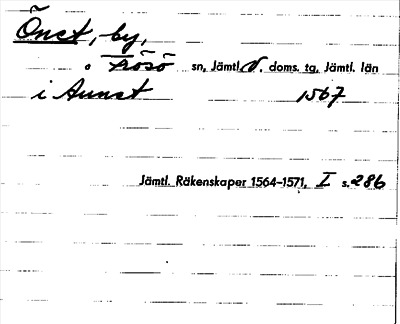 Önet, by,
Frösö sn, Jämtl. V. doms. tg, Jämtl. län
i Aunst 1567
Jämtl. Räkenskaper 1564–1571, I s. 286